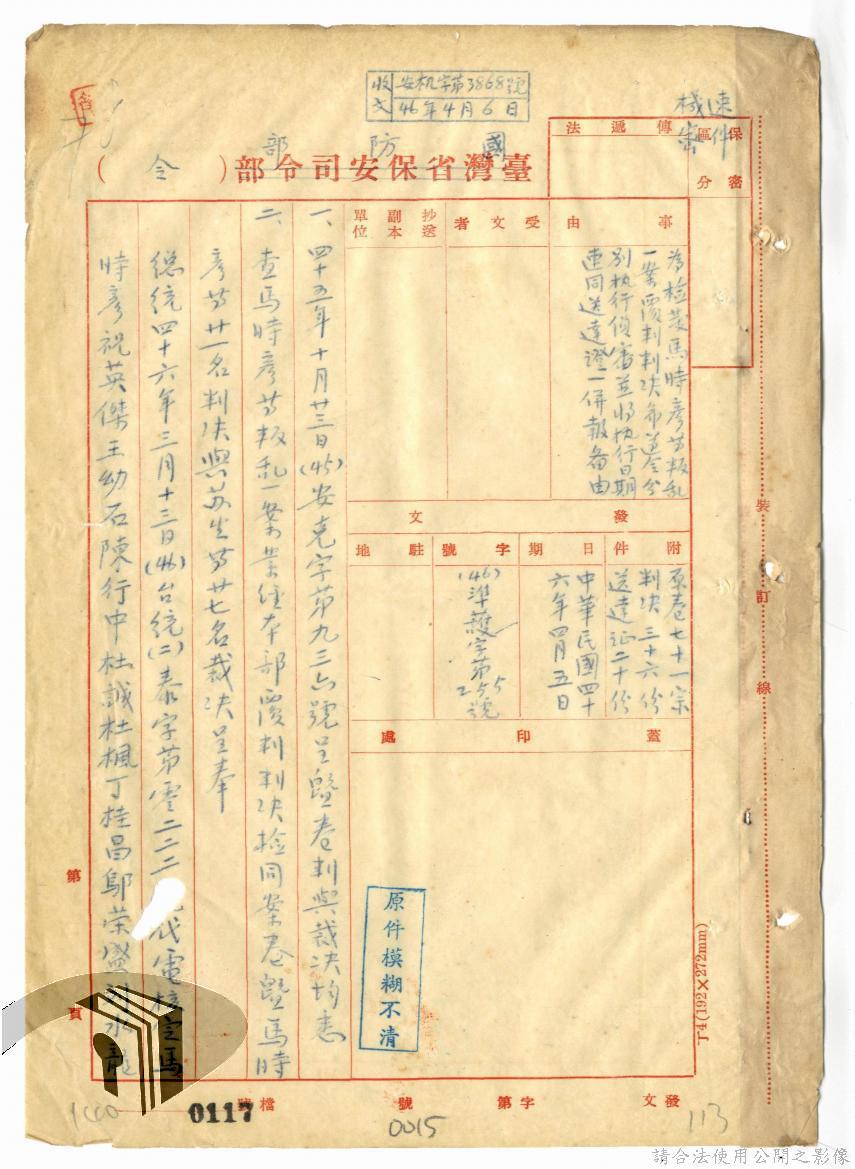 收文 安机字第3868號
46年4月6日
機密
速件
保密區分
傳遞法
國防部
臺灣省保安司令部（令）
事由
為檢發馬時彥等叛乱
一案覆判判决希遵令分
別执行偵審並將执行日期
連同送達證一併報备由
受文者
抄送副本單位
發文
附件
原卷七十一宗
判决三十六份
送達证二十份
日期
中華民國四十
六年四月五日
字號
(46)準護字第
255號
駐地
蓋印處
一、四十五年十月廿三日(45)安克字第九三六號呈暨卷判與裁决均悉
二、查馬時彥等叛乱一案業經本部覆判判决检同案卷暨馬時
彥等廿一名判决與苏生等廿七名裁决呈奉
總統四十六年三月十三日(46)台統(二)泰字第零二二二 代電核定馬
時彥祝英傑王幼石陳行中杜誠杜楓丁桂昌鄔荣盛 永龍
原件模糊不清
裝訂線
丁4(192×272mm)
第 頁
發文 字第 號
檔號
0117
0015
113
100
請合法使用公開之影像